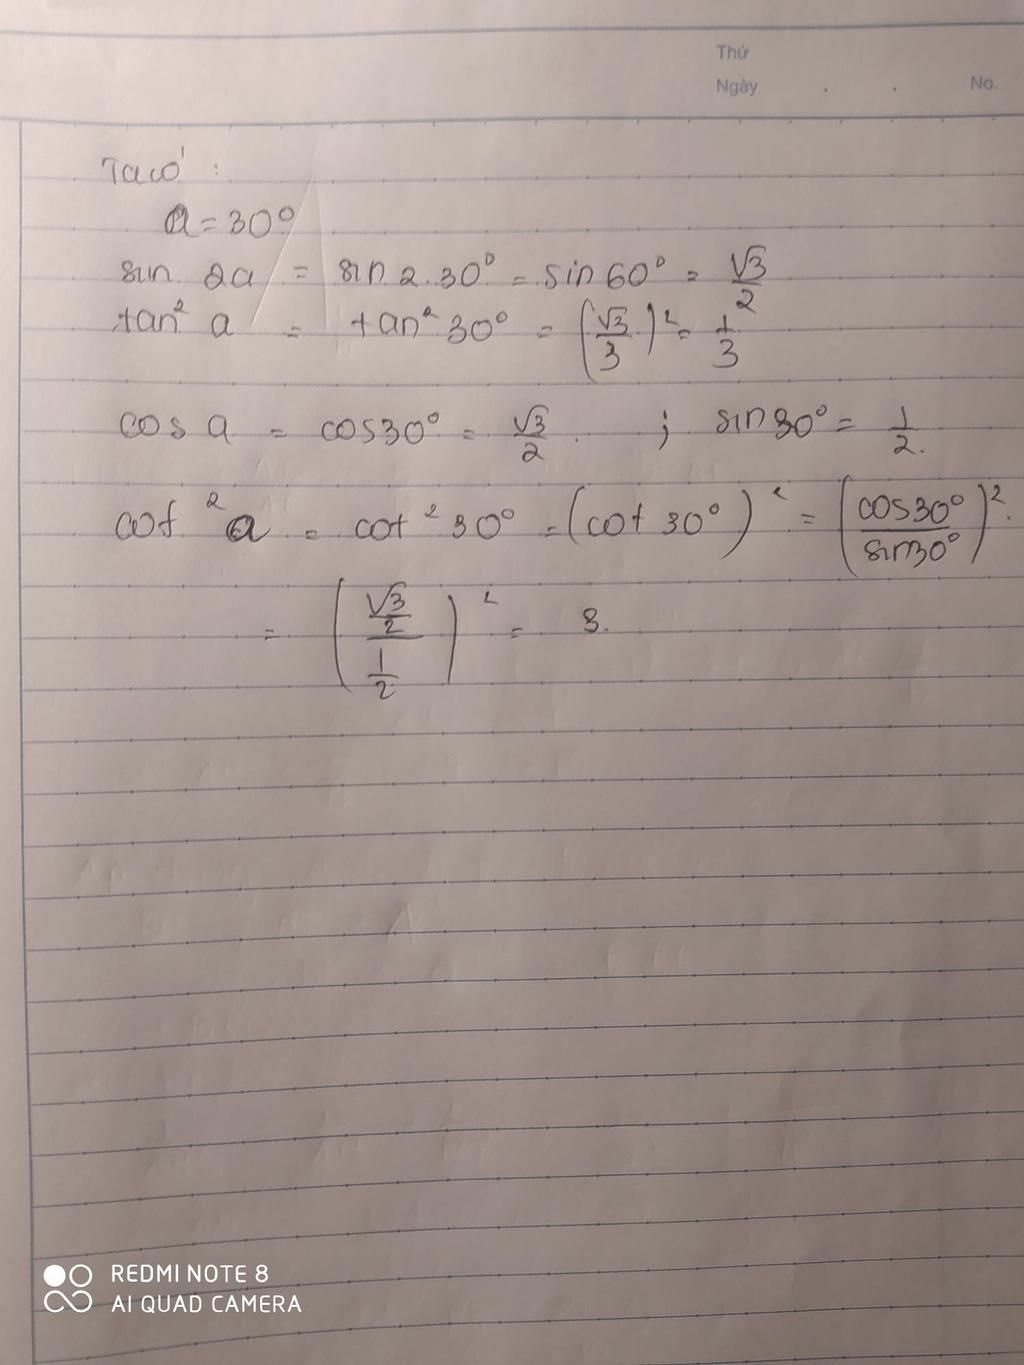 Thứ
Ngày . . No.
Ta có :
a = 30°
sin 2a = sin 2.30° = sin 60° = √3/2
tan² a = tan² 30° = (√3/3)² = 1/3
cos a = cos30° = √3/2 . ; sin 30° = 1/2.
cot² a = cot² 30° = (cot 30°)² = (cos30°/sin30°)².
= ((√3/2)/(1/2))² = 3.
REDMI NOTE 8
AI QUAD CAMERA